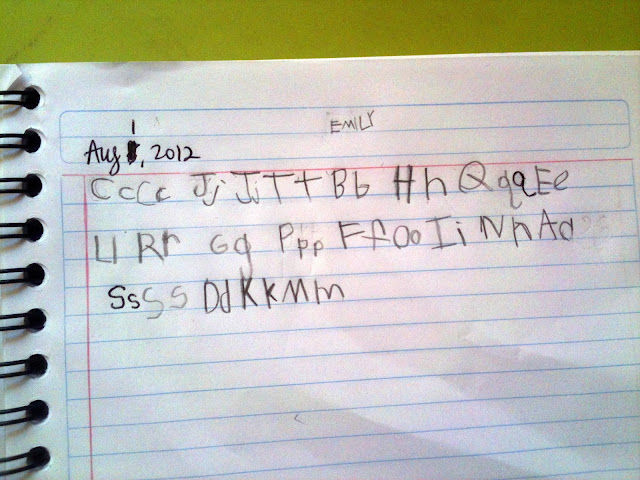 EMILY
Aug 1, 2012
CcCc Jj Jj Tt Bb Hh QqqEe
Ll Rr Gg Ppp FfOo Ii Nn Aa
SsSs DdKkMm